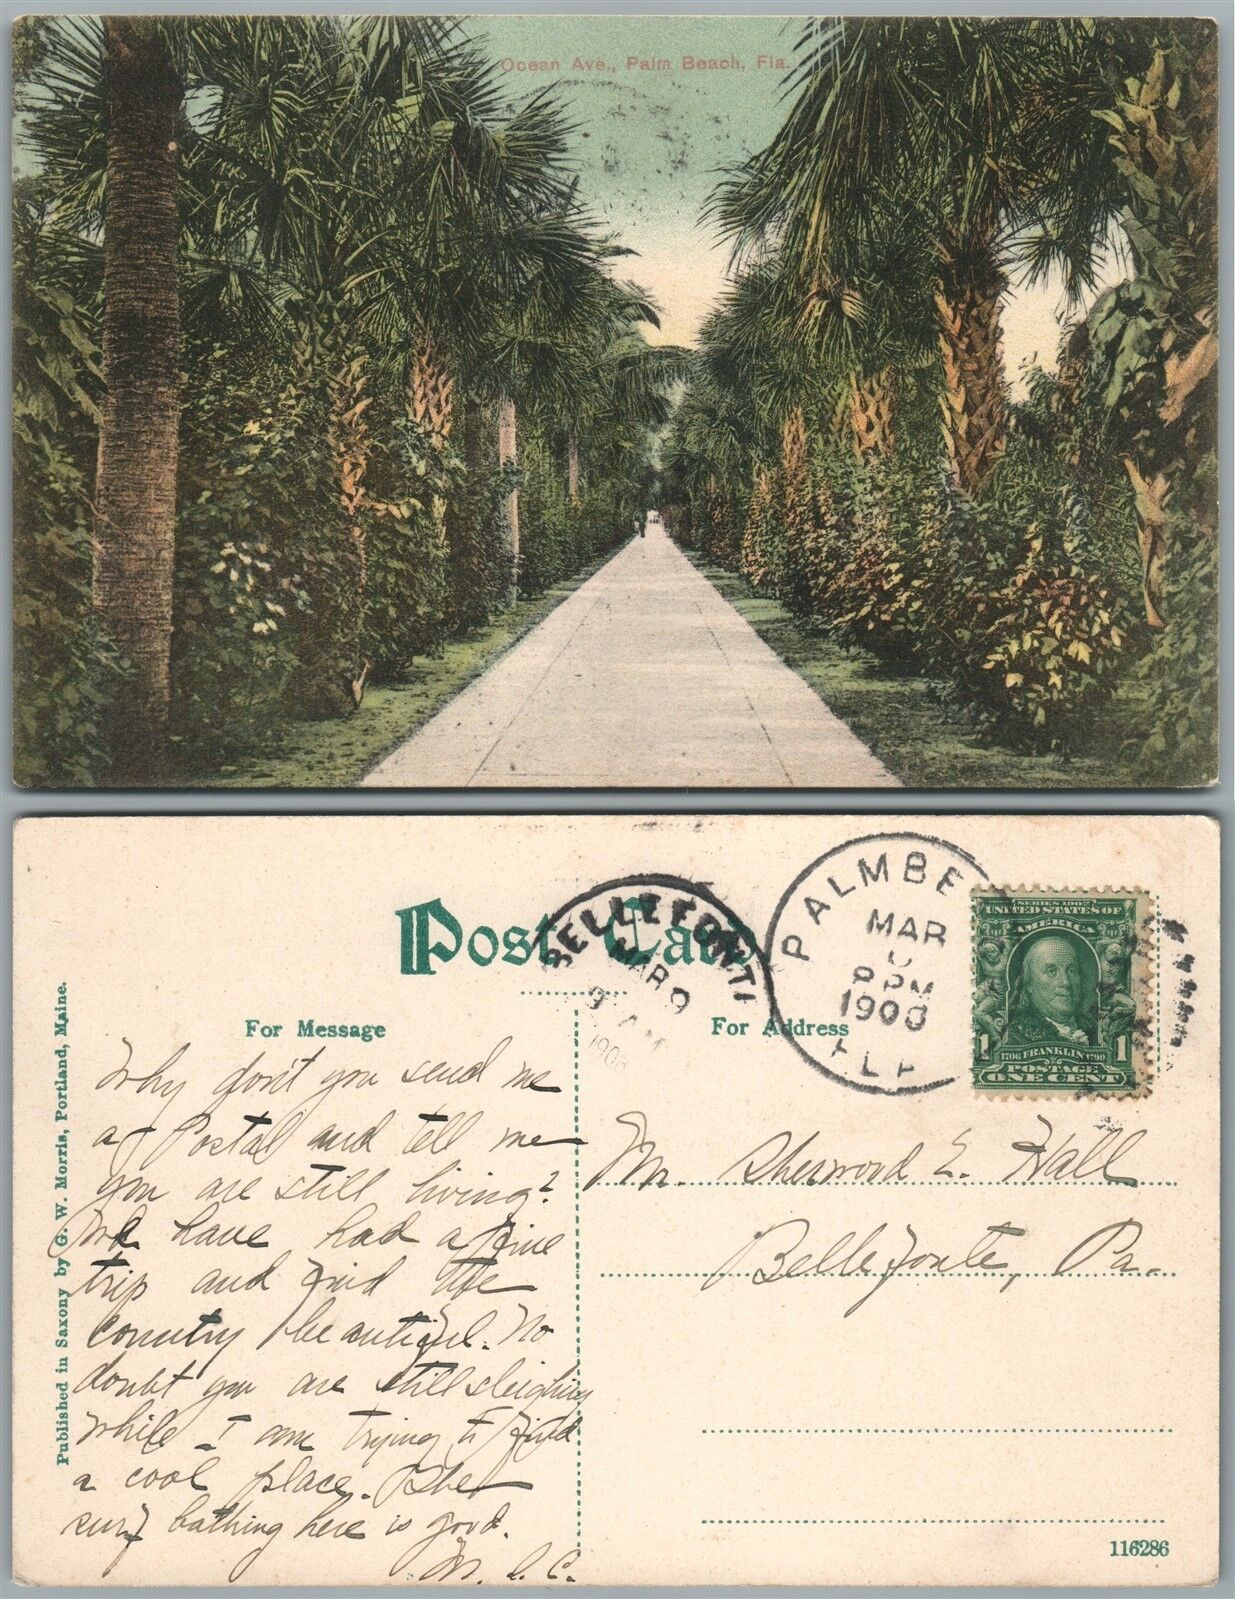 Ocean Ave., Palm Beach, Fla.
Post Card
BELLEFONT
MAR
9
190
PALMBE
MAR
PM
1908
FLA
SERIES 1902
UNITED STATES OF
AMERICA
1 1706 FRANKLIN 1790 1
POSTAGE
ONE CENT
For Message
For Address
Published in Saxony by G. W. Morris, Portland, Maine.
Why don't you send me
a Postal and tell me
you are still living?
We have had a fine
trip and find the
country beautiful. No
doubt you are still sleighing
while I am trying to find
a cool place. The
surf bathing here is good.
M. L. C.
Mr. Sherwood E. Hall
Bellefonte, Pa.
116286